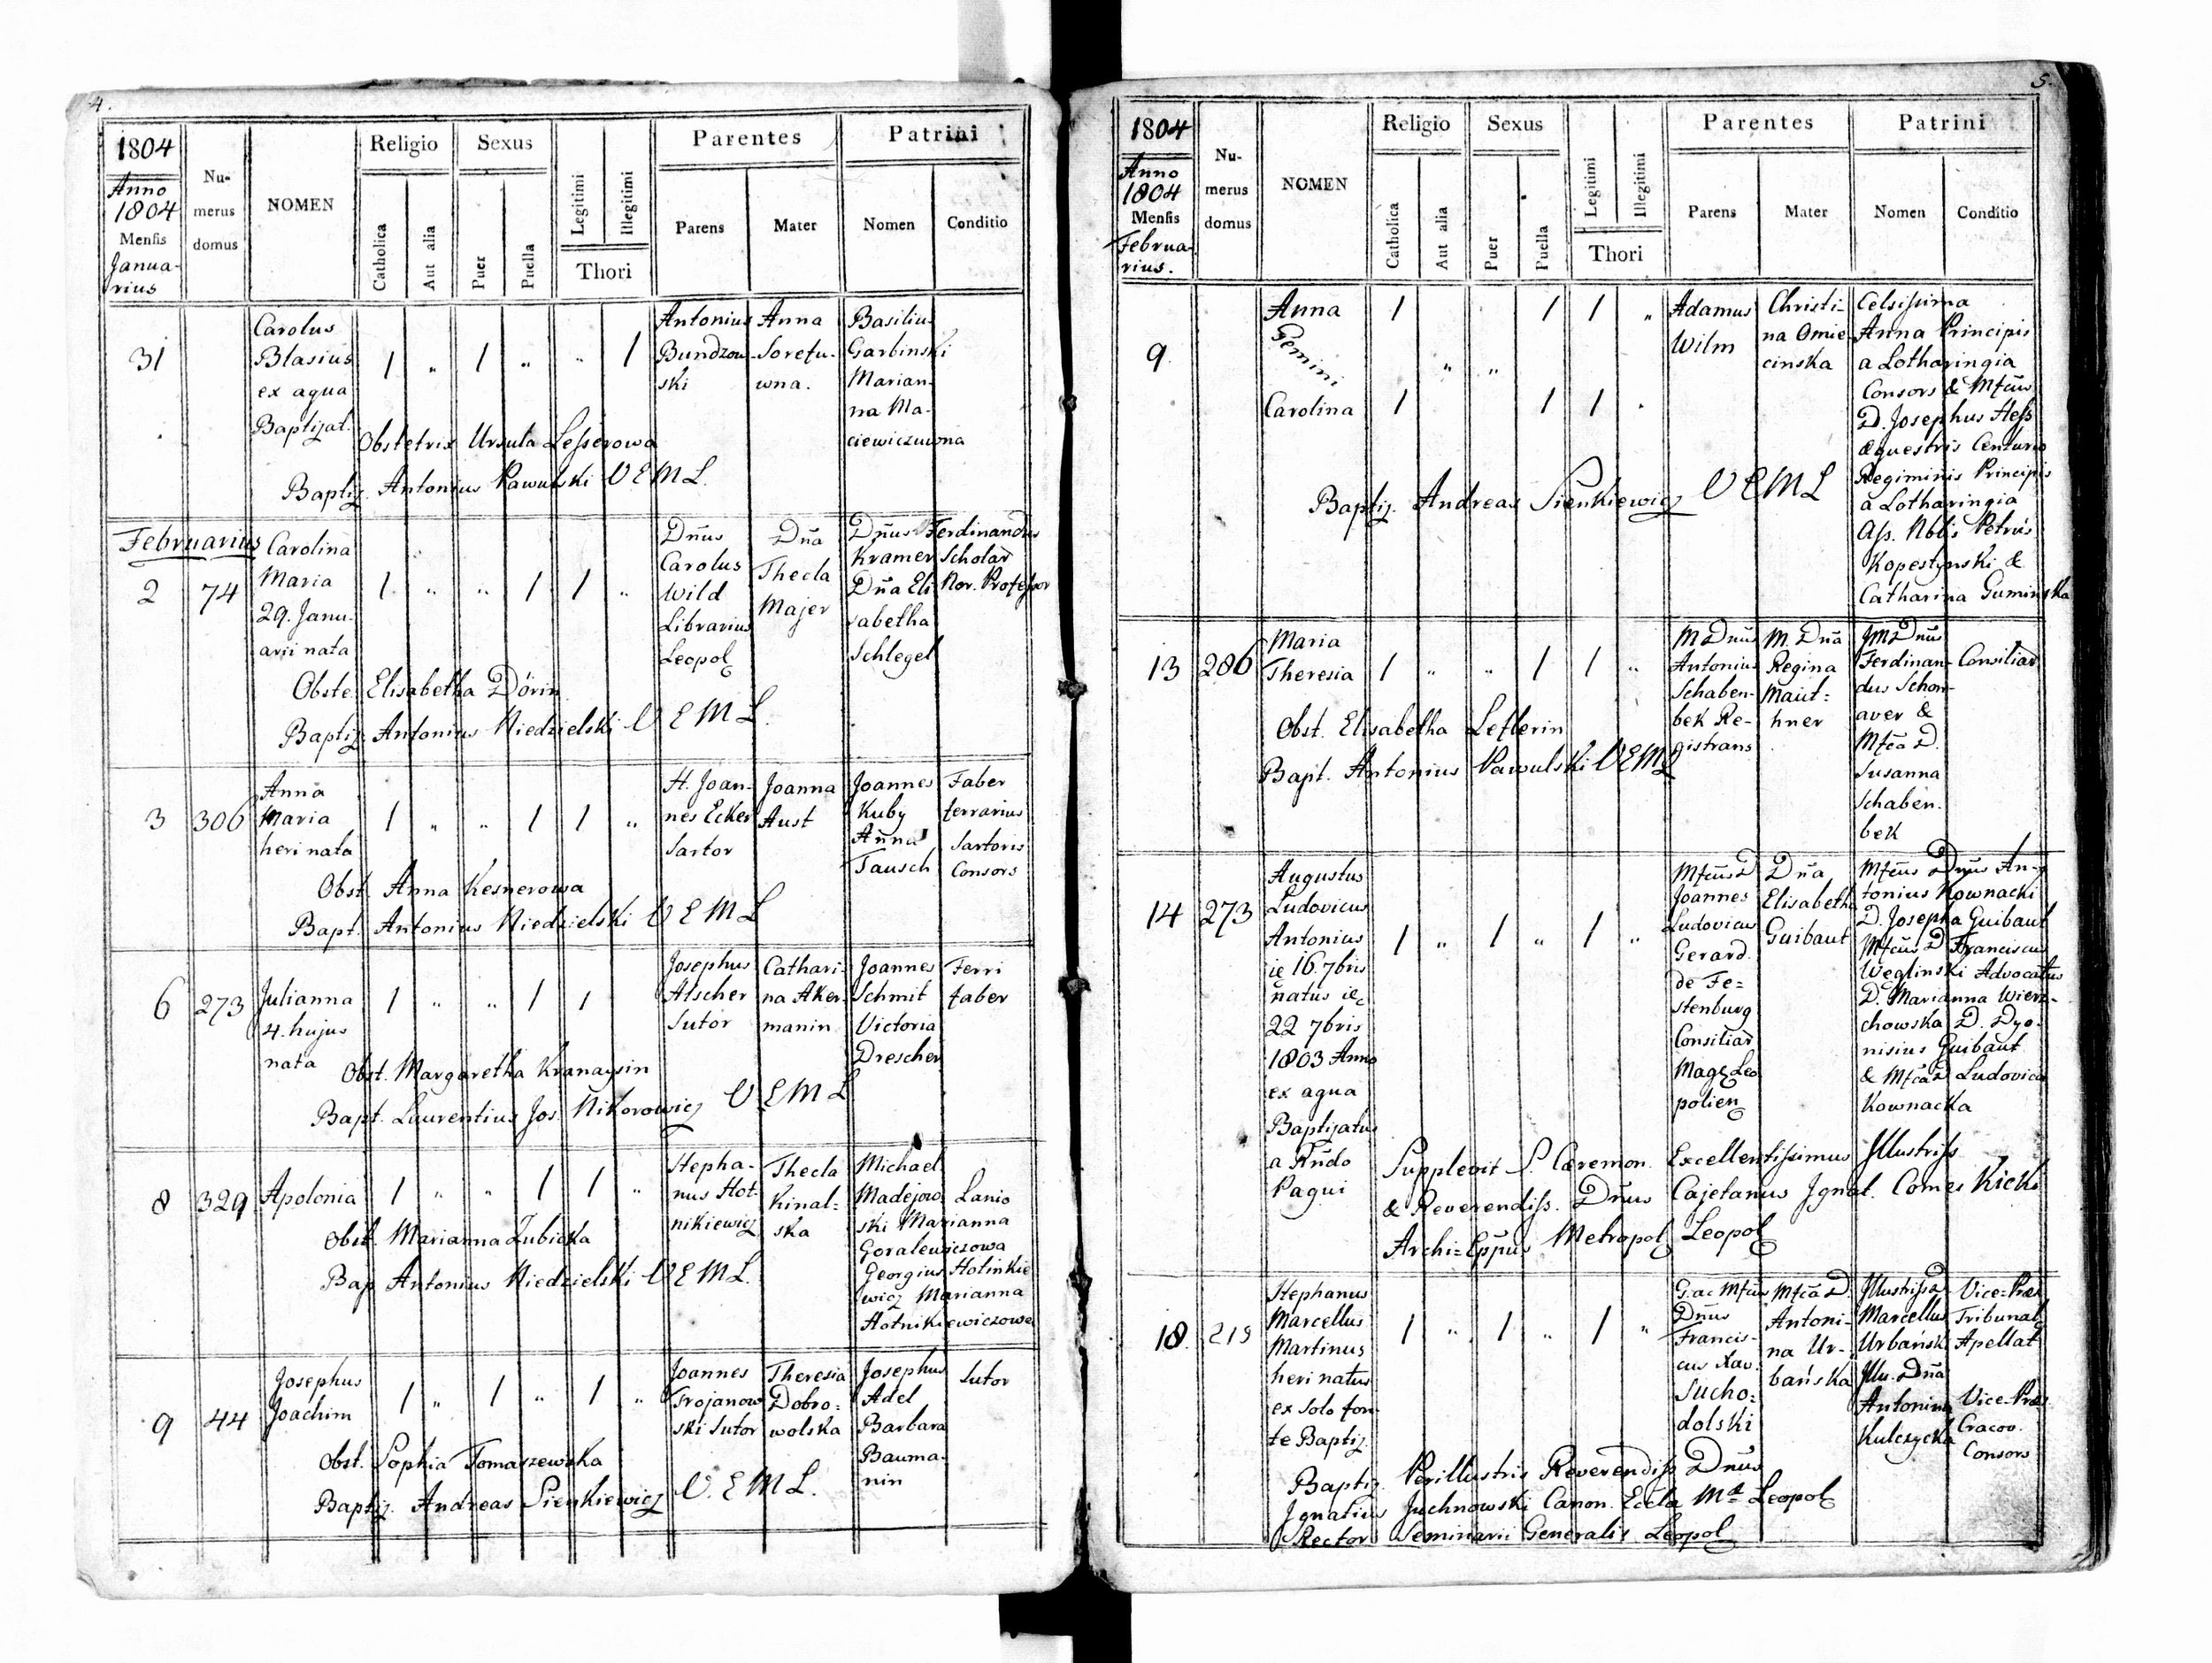 4.
1804
Anno
1804
Mensis
Janua-
rius
Nu-
merus
domus
NOMEN
Religio
Catholica
Aut alia
Sexus
Puer
Puella
Legitimi
Illegitimi
Thori
Parentes
Parens
Mater
Patrini
Nomen
Conditio
31
Carolus
Blasius
ex aqua
Baptizat.
1 " 1 " " 1
Antonius
Bundzow-
ski
Anna
Soretu-
wna.
Basilius
Garbinski
Marian-
na Ma-
ciewiczuwna
Obstetrix Ursula Lesserowa
Baptiz. Antonius Pawulski V E M L.
Februarius
2
74
Carolina
Maria
29. Janu-
arii nata
1 " " 1 1 "
Dnus
Carolus
Wild
Librarius
Leopol
Dna
Thecla
Majer
Dnus Ferdinandus
Kramer Scholar
Dna Eli Nor. Professor
sabetha
Schlegel
Obste. Elisabetha Dörin
Baptiz. Antonius Niedzielski V E M L.
3
306
Anna
Maria
heri nata
1 " " 1 1 "
H. Joan-
nes Ecker
Sartor
Joanna
Aust
Joannes
Kuby
Anna
Tausch
Faber
ferrarius
Sartoris
Consors
Obst. Anna Kesnerowa
Bapt. Antonius Niedzielski V E M L
6
273
Julianna
4. hujus
nata
1 " " 1 1
Josephus
Alscher
Sutor
Cathari-
na Aker-
manin
Joannes
Schmit
Victoria
Drescher
Ferri
faber
Obst. Margaretha Kranaysin
Bapt. Laurentius Jos. Nikorowicz V E M L
8
329
Apolonia
1 " " 1 1 "
Stepha-
nus Hot-
nikiewicz
Thecla
Kinal-
ska
Michael
Madejow-
ski Marianna
Goralewiczowa
Georgius Hotinkie
wicz Marianna
Hotnikiewiczowa
Lanio
Obst. Marianna Zubicka
Bap Antonius Niedzielski V E M L.
9
44
Josephus
Joachim
1 " 1 " 1 "
Joannes
Trojanow
ski Sutor
Theresia
Dobro-
wolska
Josephus
Adel
Barbara
Bauma-
nin
Sutor
Obst. Sophia Tomaszewska
Baptiz. Andreas Sienkiewicz V. E M L.
5.
1804
Anno
1804
Mensis
Februa-
rius.
Nu-
merus
domus
NOMEN
Religio
Catholica
Aut alia
Sexus
Puer
Puella
Legitimi
Illegitimi
Thori
Parentes
Parens
Mater
Patrini
Nomen
Conditio
9.
Anna
Gemini
Carolina
1 1 1 "
" "
1 1 1 "
Adamus
Wilm
Christi-
na Omie-
cinska
Celsissima
Anna Principis
a Lotharingia
Consors & Mfcus
D. Josephus Hess
aequestris Centurio
Regiminis Principis
a Lotharingia
Ass. Nblis Petrus
Kopestynski &
Catharina Guminska
Baptiz. Andreas Sienkiewicz V E M L
13
286
Maria
Theresia
1 " " 1 1 "
M Dnus
Antonius
Schaben-
bek Re-
gistrans
M. Dna
Regina
Maut-
hner
JM Dnus
Ferdinan-
dus Schon-
aver &
Mfca D.
Susanna
Schaben-
bek
Consiliar
Obst. Elisabetha Leflerin
Bapt. Antonius Pawulski V E M L
14
273
Augustus
Ludovicus
Antonius
ie 16. 7bris
natus ie
22 7bris
1803 Anno
ex aqua
Baptizatus
a Rndo
Pagui
1 " 1 " 1 "
Mfcus D
Joannes
Ludovicus
Gerard
de Fe-
stenburg
Consiliar
Mag. Leo
polien
Dna
Elisabetha
Guibaut
Mfcus Dnus An-
tonius Kownacki
D. Josepha Guibaut
Mfcus D Franciscus
Weglinski Advocatus
D. Marianna Wierz-
chowska D. Dyo-
nisius Guibaut
& Mfca D Ludovica
Kownacka
Supplevit S. Caeremon. Excellentissimus Illustriss
& Reverendiss. Dnus Cajetanus Ignat. Comes Kicki
Archi-Eppus Metropol Leopol
18.
219
Stephanus
Marcellus
Martinus
heri natus
ex solo fon-
te Baptiz.
1 " 1 " 1 "
G. ac Mfcus
Dnus
Francis-
cus Xav.
Sucho-
dolski
Mfca D.
Antoni-
na Ur-
bańska
Illustriss D
Marcellus
Urbański
Illu. Dna
Antonina
Kulczycka
Vice-Præs
Tribunal
Apellat
Vice-Præs
Cracov.
Consors
Baptiz. Perillustris Reverendiss Dnus
Ignatius Juchnowski Canon. Eccla Mæ Leopol
Rector Seminarii Generalis Leopol